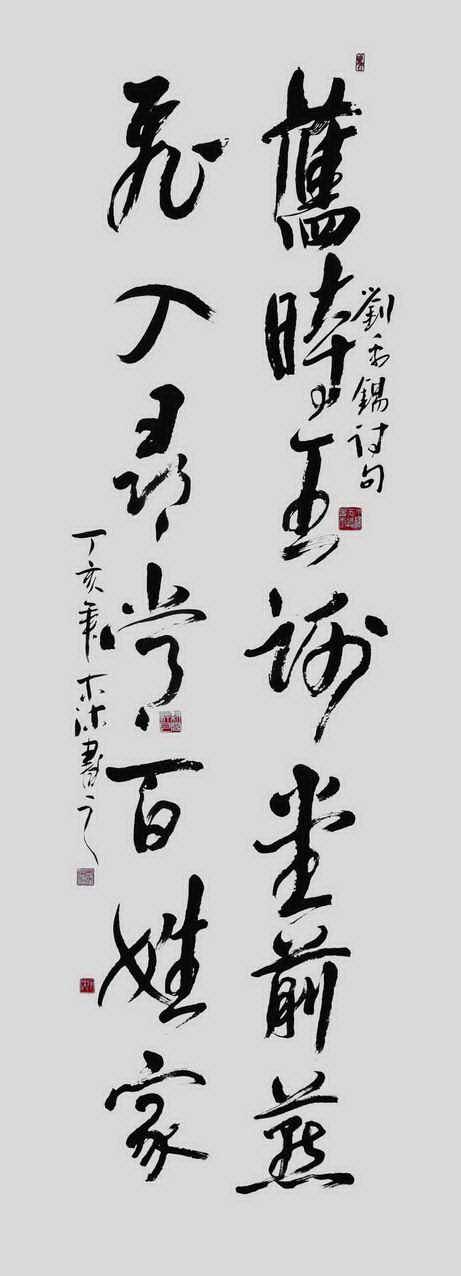 舊時王謝堂前燕
劉禹錫詩句
飛入尋常百姓家
丁亥年
書之